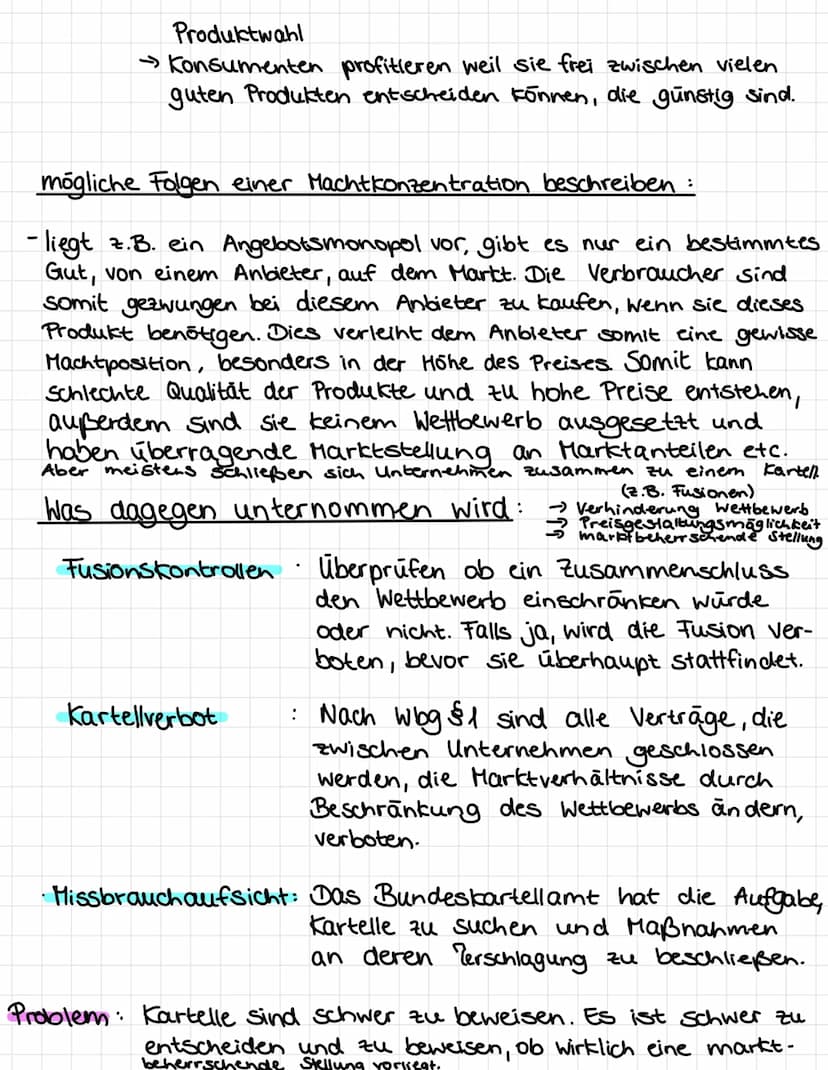 Produktwahl
→ Konsumenten profitieren weil sie frei zwischen vielen
guten Produkten entscheiden können, die günstig sind.
mögliche Folgen einer Machtkonzentration beschreiben :
- liegt z.B. ein Angebotsmonopol vor, gibt es nur ein bestimmtes
Gut, von einem Anbieter, auf dem Markt. Die Verbraucher sind
somit gezwungen bei diesem Anbieter zu kaufen, wenn sie dieses
Produkt benötigen. Dies verleiht dem Anbieter somit eine gewisse
Machtposition, besonders in der Höhe des Preises. Somit kann
schlechte Qualität der Produkte und zu hohe Preise entstehen,
außerdem sind sie keinem Wettbewerb ausgesetzt und
haben überragende Marktstellung an Marktanteilen etc.
Aber meistens schließen sich Unternehmen zusammen zu einem Kartell
(z.B. Fusionen)
Was dagegen unternommen wird :
→ Verhinderung Wettbewerb
→ Preisgestaltungsmöglichkeit
→ marktbeherrschende Stellung
Fusionskontrollen : Überprüfen ob ein Zusammenschluss
den Wettbewerb einschränken würde
oder nicht. Falls ja, wird die Fusion ver-
boten, bevor sie überhaupt stattfindet.
Kartellverbot : Nach Wbg §1 sind alle Verträge, die
zwischen Unternehmen geschlossen
werden, die Marktverhältnisse durch
Beschränkung des Wettbewerbs ändern,
verboten.
Missbrauchaufsicht: Das Bundeskartellamt hat die Aufgabe,
Kartelle zu suchen und Maßnahmen
an deren Zerschlagung zu beschließen.
Problem : Kartelle sind schwer zu beweisen. Es ist schwer zu
entscheiden und zu beweisen, ob wirklich eine markt-
beherrschende Stellung vorliegt.